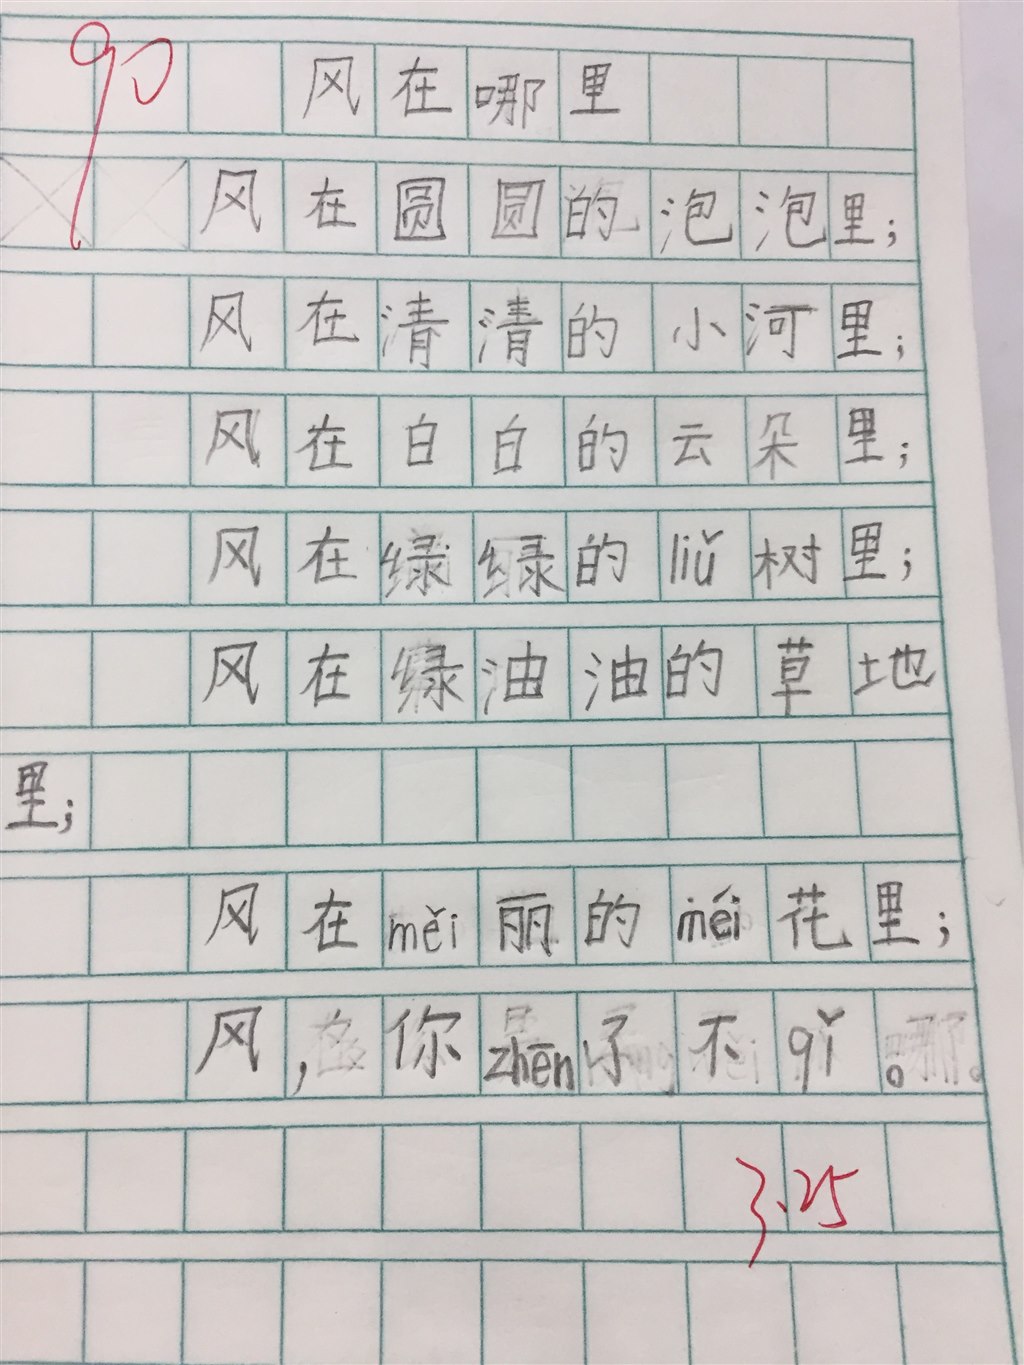 90
风在哪里
风在圆圆的泡泡里;
风在清清的小河里;
风在白白的云朵里;
风在绿绿的liǔ树里;
风在绿油油的草地
里;
风在měi丽的méi花里;
风,你zhēn了不qǐ。
3.25